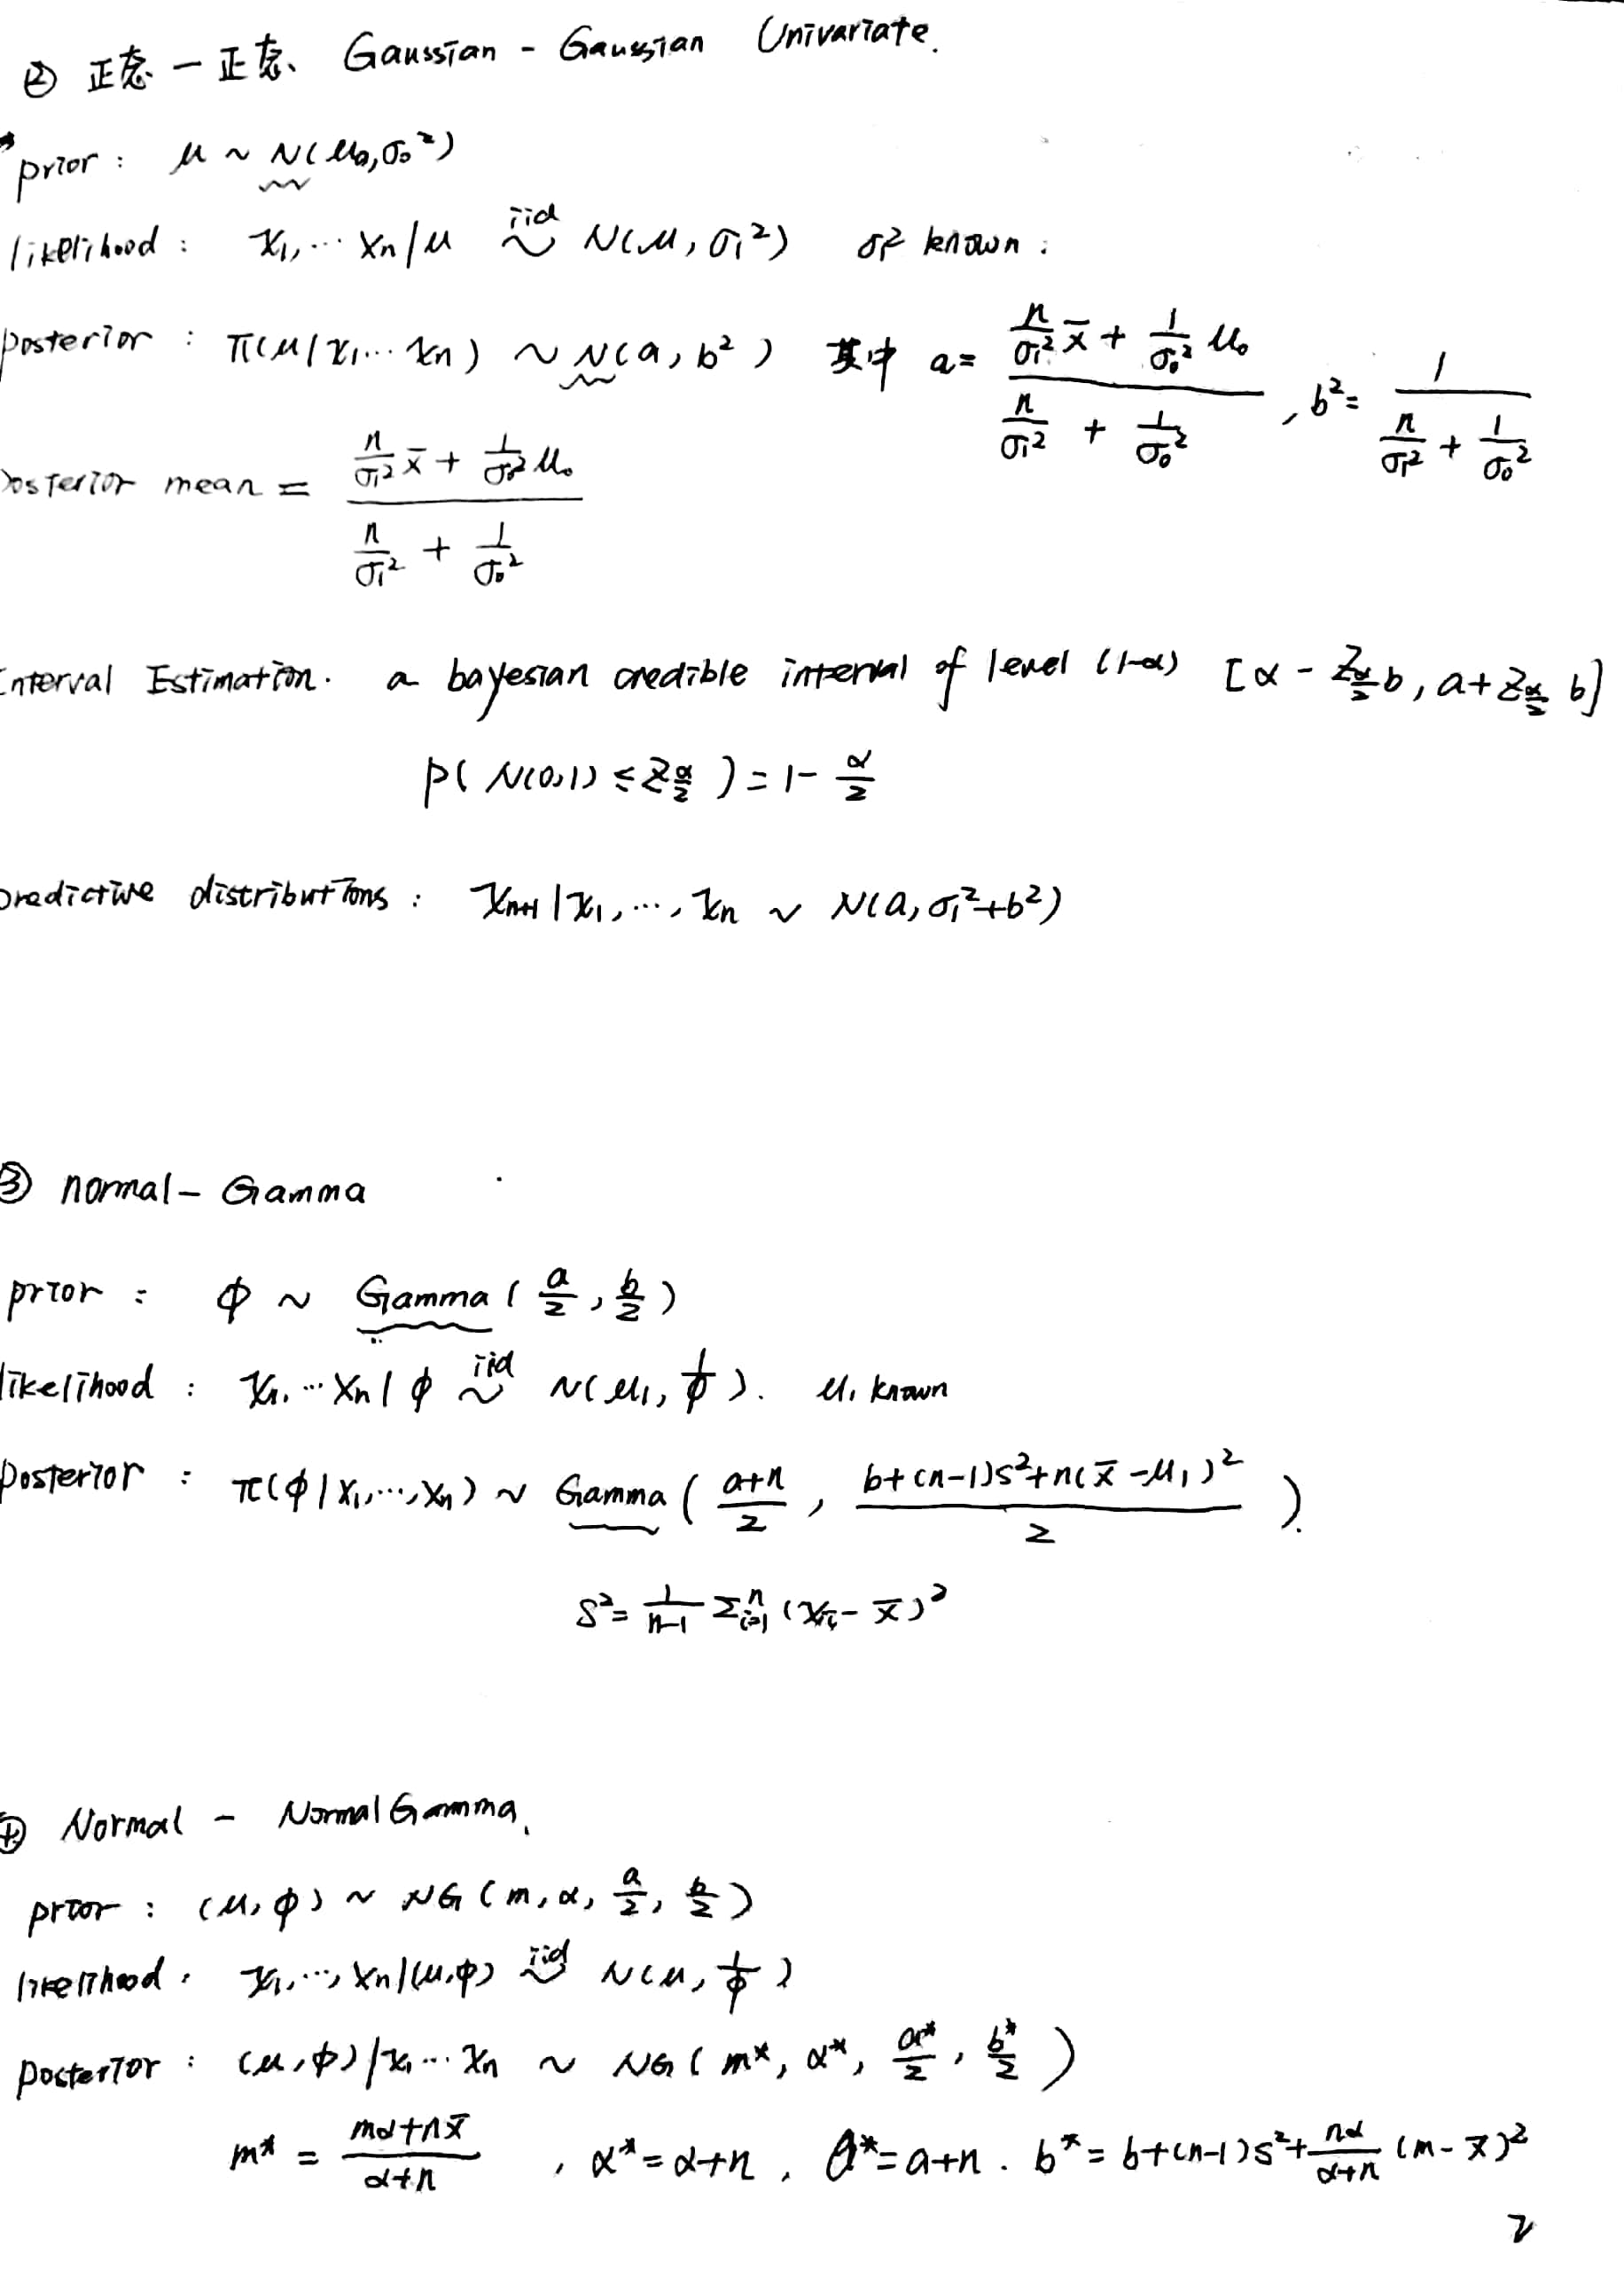 ② 正态 - 正态、 Gaussian - Gaussian Univariate.
prior : μ ~ N(μ₀, σ₀²)
likelihood : x₁, ... xₙ / μ iid ~ N(μ, σ₁²) σ₁² known :
posterior : π(μ / x₁ ... xₙ) ~ N(a, b²) 其中 a = (n/σ₁² x̄ + 1/σ₀² μ₀) / (n/σ₁² + 1/σ₀²) , b² = 1 / (n/σ₁² + 1/σ₀²)
posterior mean = (n/σ₁² x̄ + 1/σ₀² μ₀) / (n/σ₁² + 1/σ₀²)
Interval Estimation. a bayesian credible interval of level (1-α) [α - z_{α/2} b, a + z_{α/2} b]
P( N(0,1) ≤ z_{α/2} ) = 1 - α/2
predictive distributions : xₙ₊₁ | x₁, ..., xₙ ~ N(a, σ₁² + b²)
③ normal - Gamma
prior : φ ~ Gamma ( a/2 , b/2 )
likelihood : x₁, ... xₙ / φ iid ~ N( μ₁, 1/φ ). μ₁ known
posterior : π(φ | x₁, ..., xₙ) ~ Gamma ( (a+n)/2 , (b+(n-1)s²+n(x̄-μ₁)²)/2 ).
s² = 1/(n-1) Σᵢ₌₁ⁿ (xᵢ - x̄)²
④ Normal - NormalGamma.
prior : (μ, φ) ~ NG ( m, α, a/2, b/2 )
likelihood . x₁, ..., xₙ / (μ, φ) iid ~ N(μ, 1/φ)
posterior : (μ, φ) / x₁ ... xₙ ~ NG ( m*, α*, a*/2 , b*/2 )
m* = (mα + nx̄)/(α+n) , α* = α+n , a* = a+n . b* = b+(n-1)s² + nα/(α+n) (m - x̄)²
2